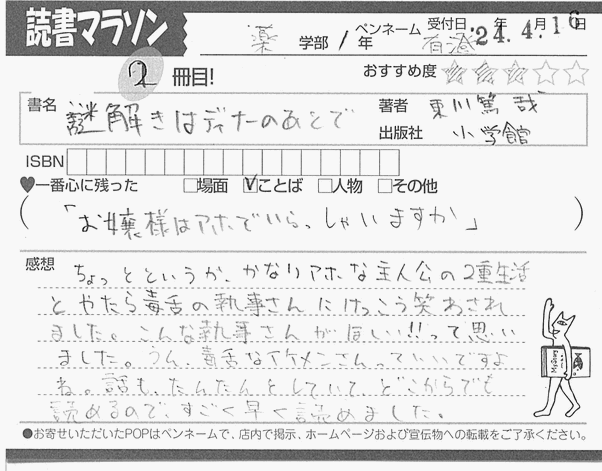 読書マラソン
薬 学部 / 年 ペンネーム 有澄 受付日 '24.4.16 年 月 日
2 冊目! おすすめ度 ★★★☆☆
書名 謎解きはディナーのあとで 著者 東川篤哉
出版社 小学館
ISBN
♥一番心に残った □場面 ☑ことば □人物 □その他
(「お嬢様はアホでいらっしゃいますか」)
感想 ちょっとというか、かなりアホな主人公の2重生活
とやたら毒舌の執事さんにけっこう笑わされ
ました。こんな執事さんがほしい!!って思い
ました。うん、毒舌なイケメンさんっていいですよ
ね。話も、たんたんとしていて、どこからでも
読めるので、すごく早く読めました。
●お寄せいただいたPOPはペンネームで、店内で掲示、ホームページおよび宣伝物への転載をご了承ください。